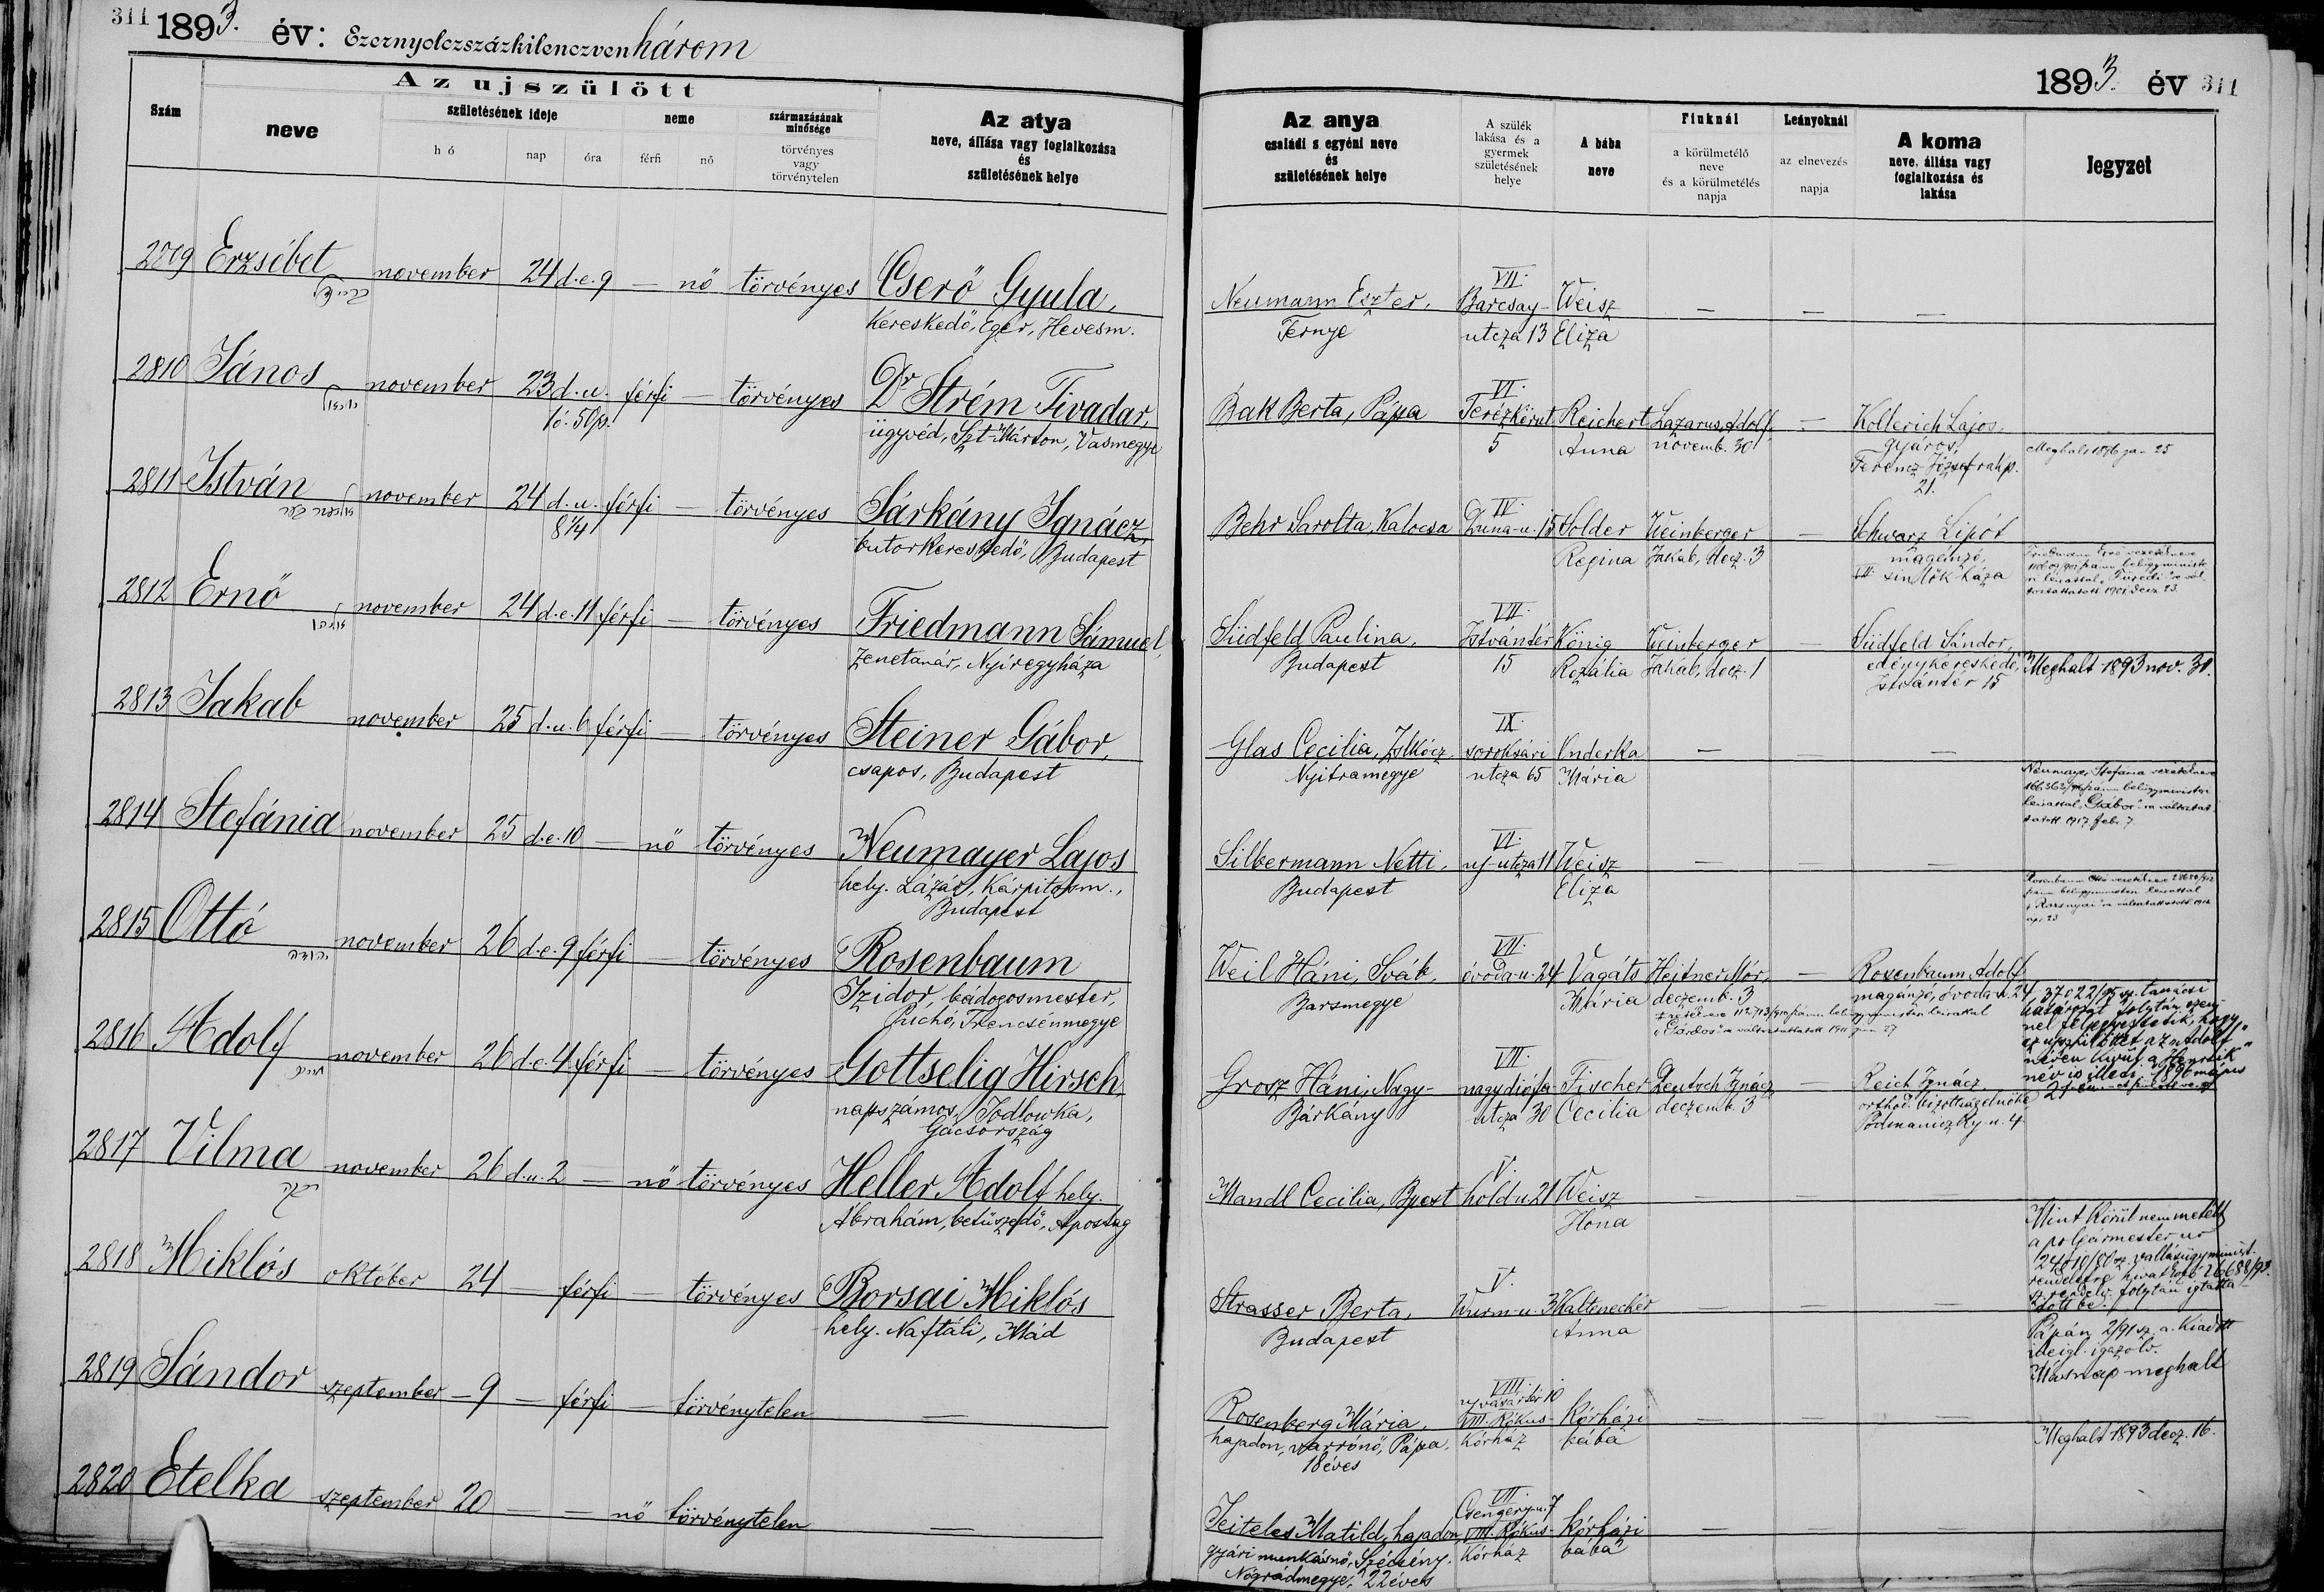 311
1893. év: Ezernyolczszázkilenczvenhárom
Az ujszülött
Szám
neve
születésének ideje
hó
nap
óra
neme
férfi
nő
származásának minősége
törvényes
vagy
törvénytelen
Az atya
neve, állása vagy foglalkozása
és
születésének helye
2809 Erzsébet november 24 d.e. 9 — nő törvényes Cserő Gyula,
kereskedő, Eger, Hevesm.
2810 János november 23 d.u. férfi — törvényes Dr Strém Tivadar,
6 ó. 50 p.
ügyvéd, Szt-Márton, Vasmegye
2811 István november 24 d.u. férfi — törvényes Sárkány Ignácz,
8 1/4
butorkereskedő, Budapest
2812 Ernő november 24 d.e. 11 férfi — törvényes Friedmann Sámuel,
zenetanár, Nyíregyháza
2813 Jakab november 25 d.u. 6 férfi — törvényes Steiner Gábor,
csapos, Budapest
2814 Stefánia november 25 d.e. 10 — nő törvényes Neumayer Lajos
hely. Lázár, kárpitosm.,
Budapest
2815 Ottó november 26 d.e. 9 férfi — törvényes Rosenbaum
Izidor, bádogosmester,
Puchó, Trencsénmegye
2816 Adolf november 26 d.e. 4 férfi — törvényes Gottselig Hirsch,
napszámos, Jodlowka,
Gácsország
2817 Vilma november 26 d.u. 2 — nő törvényes Heller Adolf hely.
Abrahám, betűszedő, Apostag
2818 Miklós október 24 — férfi — törvényes Borsai Miklós
hely. Naftáli, Mád
2819 Sándor szeptember — 9 — férfi — törvénytelen —
2820 Etelka szeptember 20 — — nő törvénytelen —
1893. év 311
Az anya
családi s egyéni neve
és
születésének helye
A szülék
lakása és a
gyermek
születésének
helye
A bába
neve
Fiuknál
a körülmetélő
neve
és a körülmetélés
napja
Leányoknál
az elnevezés
napja
A koma
neve, állása vagy
foglalkozása és
lakása
Jegyzet
VII.
Neumann Eszter, Barcsay- Weisz — — —
Ternye utcza 13 Eliza
VI.
Bak Berta, Pápa Terézkörut Reichert Lazarus Adolf, — Kollerich Lajos,
5 Anna novemb. 30 gyáros,
Ferencz József rakp.
21.
Meghalt 1896 jan 25
IV.
Behr Sarolta, Kalocsa Duna-u. 15 Solder Weinberger — Schwarz Lipót
Regina Jakab, decz. 3 magánzó,
Friedmann Ernő vezetékneve
VII.
Südfeld Paulina, Istvántér König Weinberger — Südfeld Sándor,
Budapest 15 Rozália Jakab, decz. 1 edénykereskedő,
Istvántér 15
Meghalt 1893 nov. 30.
IX.
Glas Cecilia, Zslkócz. soroksári Onderka — — —
Nyitramegye utcza 65 Mária
Neumayer Stefánia vezetékneve
VI.
Silbermann Netti, uj-utcza 11 Weisz — — —
Budapest Eliza
VII.
Weil Háni, Svák, óvoda-u. 24 Vagáts Hejtner Mór, — Rosenbaum Adolf
Barsmegye Mária deczemb. 3 magánzó, óvoda u. 24
VII.
Grosz Háni, Nagy- nagydiófa- Fischer Deutsch Ignácz — Reich Ignácz
Bárkány utcza 30 Cecilia deczemb. 3 orthod. bizottság elnöke
Podmaniczky-u. 4
V.
Mandl Cecilia, Bpest hold u. 21 Weisz — — —
Ilona
Mint körül nem metélt
a polgármester ur
V.
Strasser Berta, Wurm-u. 3 Kaltenecker — — —
Budapest Anna
Másnap meghalt
VIII.
ujvásártér 10
Rosenberg Mária, VIII. Rókus- Kórházi — — —
hajadon, varrónő, Pápa, kórház bába
18 éves
Meghalt 1893 decz. 16.
VII.
Csengery-u. 7
Teiteles Matild, hajadon, VIII. Rókus- Kórházi — — —
gyári munkásnő, Szécsény. kórház bába
Nógrádmegye, 22 éves